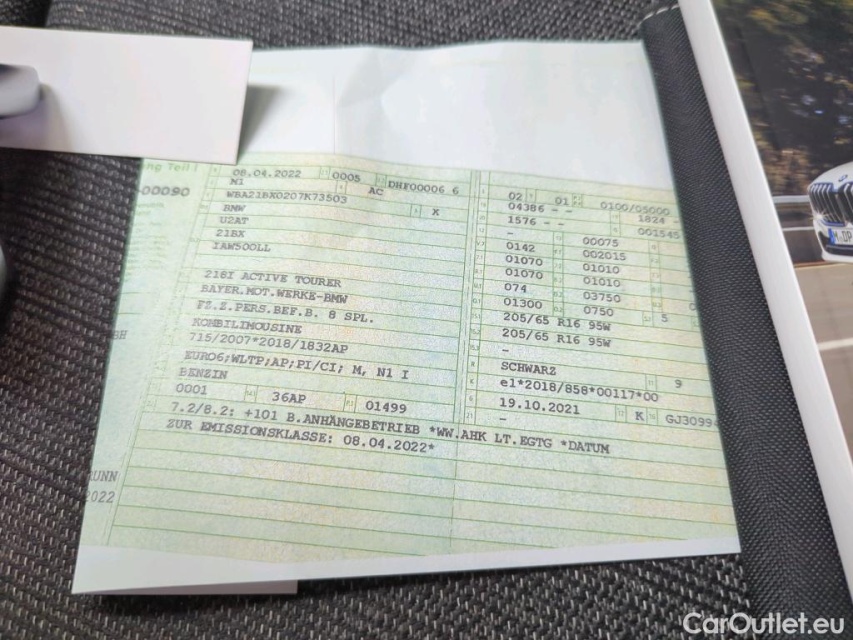 ng Teil I
08.04.2022 0005 DHF00006 6
M1 AC
-00090
WBA21BX0207K73503
BMW X
U2AT
21BX
IAW500LL
218I ACTIVE TOURER
BAYER.MOT.WERKE-BMW
FZ.Z.PERS.BEF.B. 8 SPL.
KOMBILIMOUSINE
715/2007*2018/1832AP
EURO6;WLTP;AP;PI/CI; M, N1 I
BENZIN
0001 36AP 01499
7.2/8.2: +101 B.ANHÄNGEBETRIEB *WW.AHK LT.EGTG *DATUM
ZUR EMISSIONSKLASSE: 08.04.2022*
02 01 0100/05000
04386 - - 1824
1576 - - 001545
- 00075
0142 002015
01070 01010
01070 01010
074 03750
01300 0750
205/65 R16 95W 5
205/65 R16 95W
-
SCHWARZ 9
e1*2018/858*00117*00
19.10.2021 K GJ3099
-
UNN
2022
CarOutlet.eu